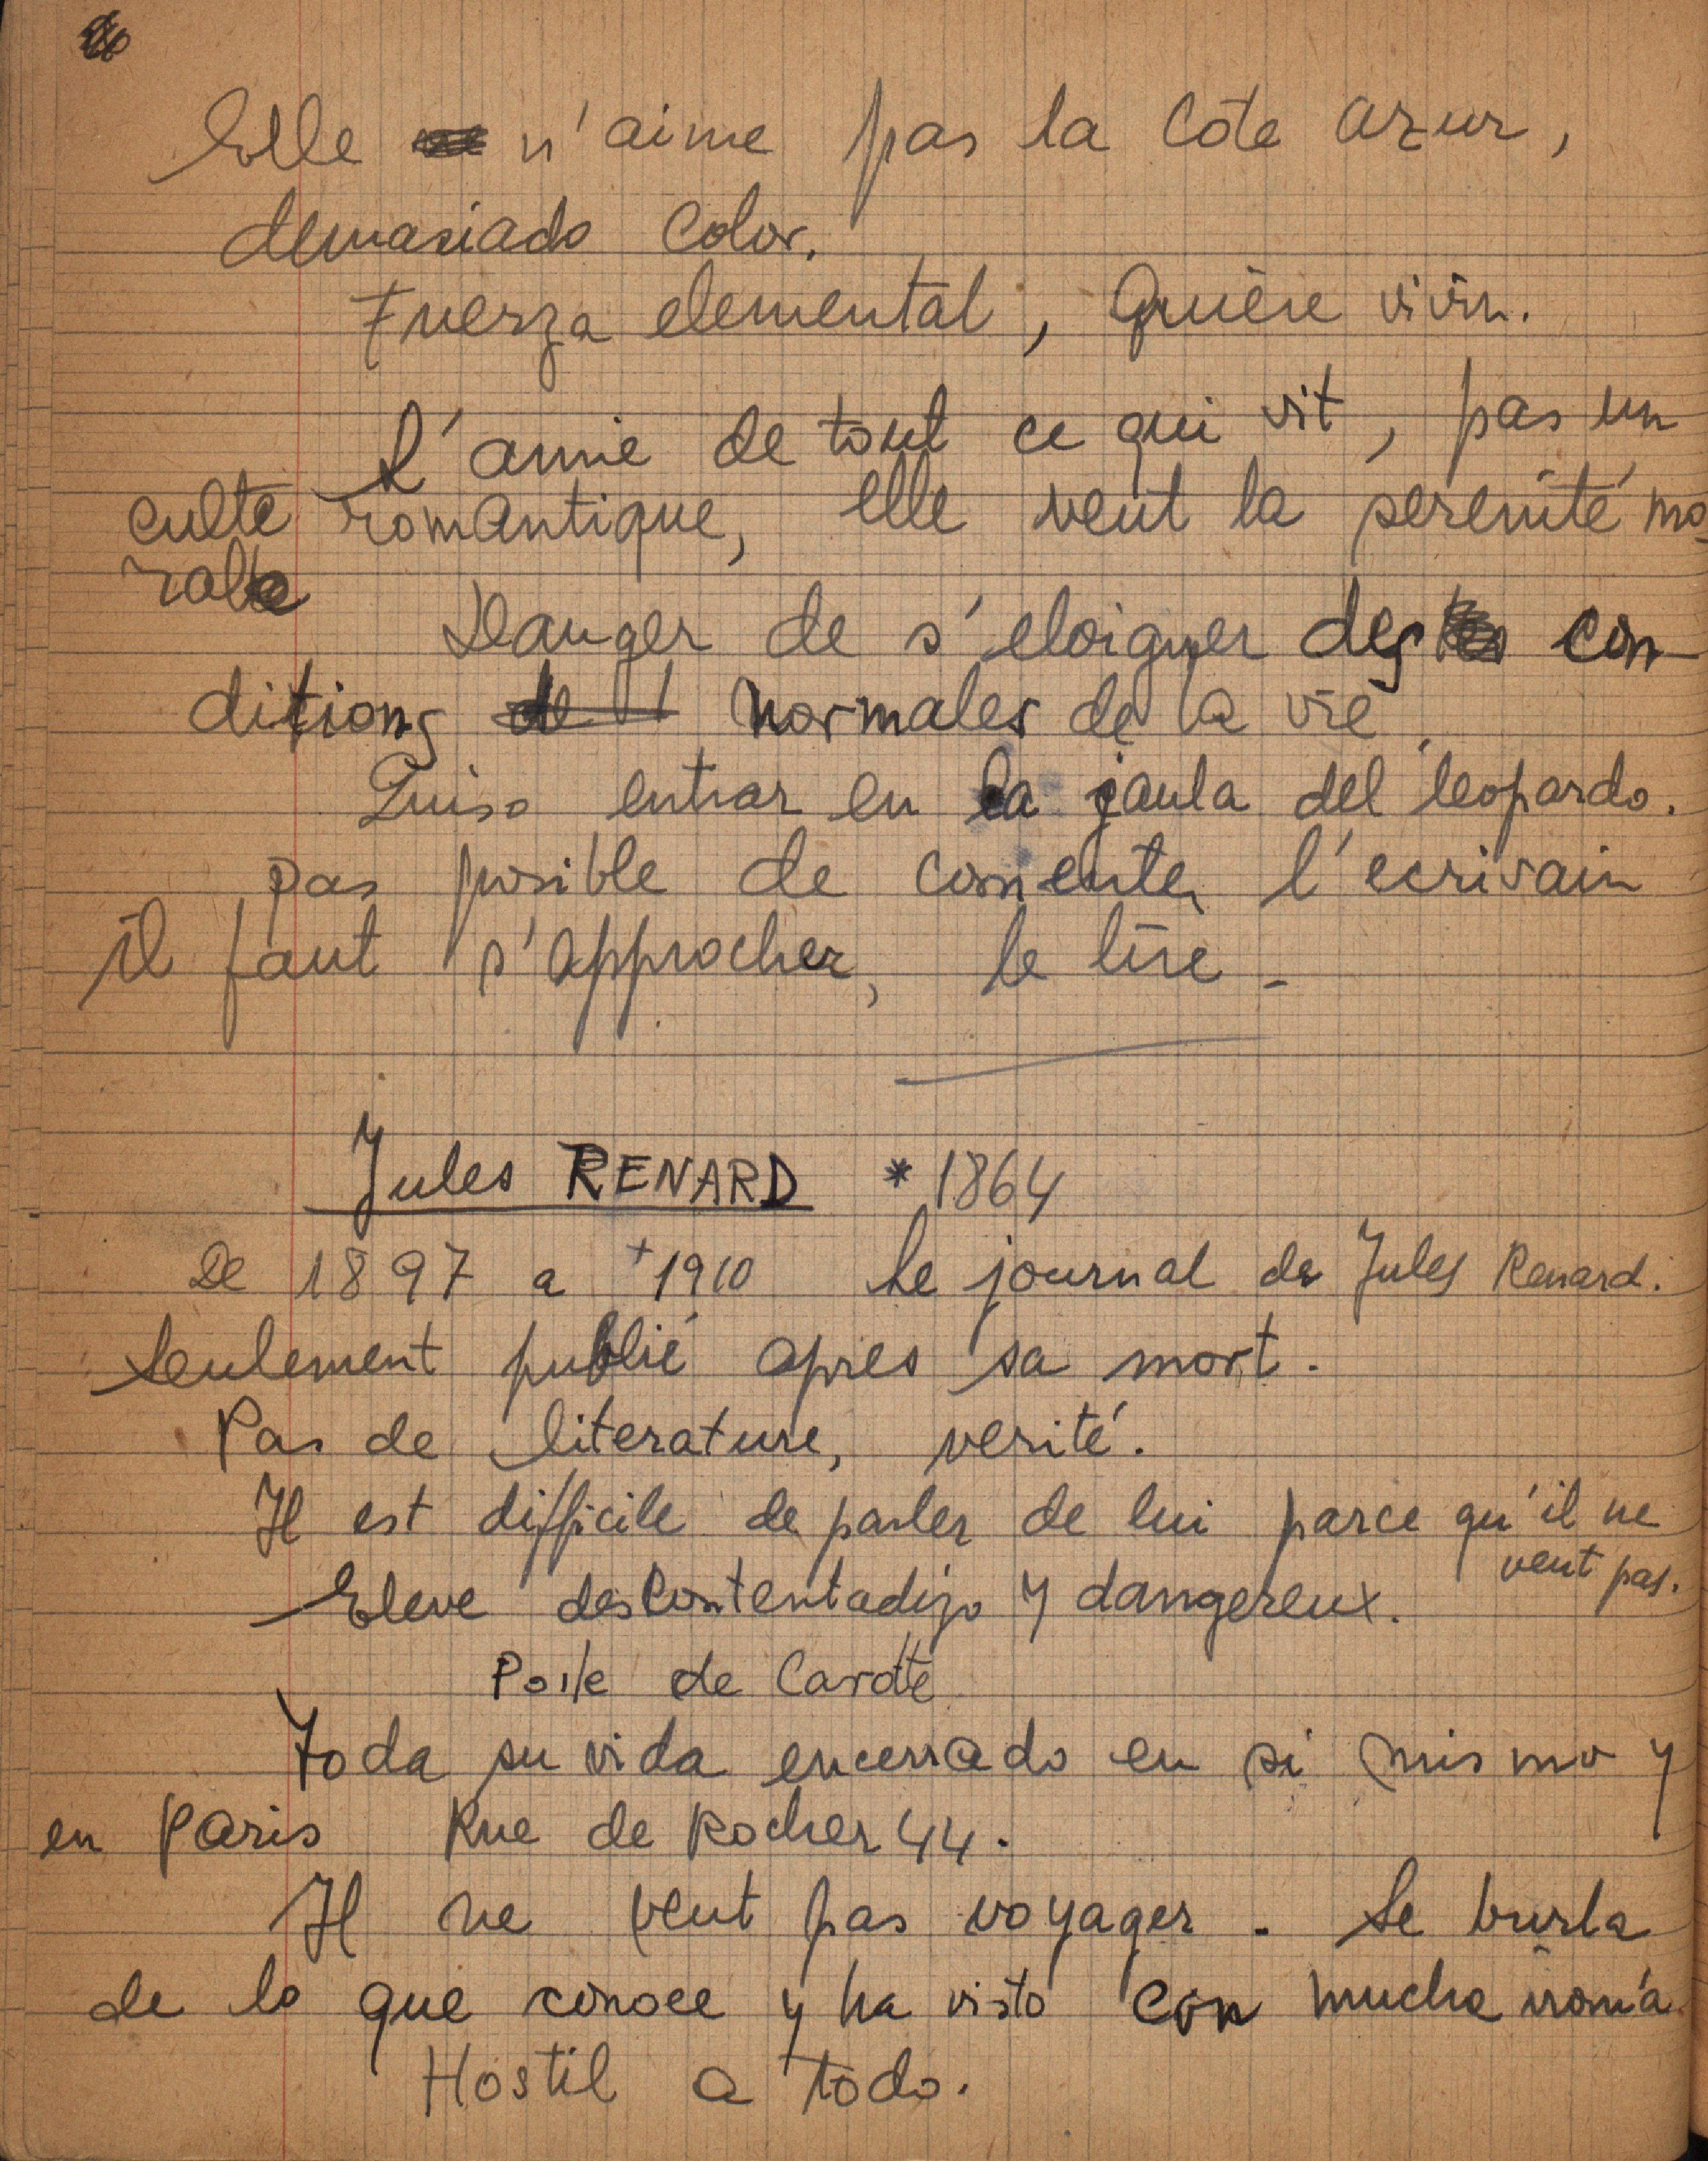 Elle n'aime pas la Côte azur,
demasiado color.
Fuerza elemental, Quière vivir.
L'amie de tout ce qui vit, pas un
culte romantique, elle veut la serenité mo-
rale
Danger de s'eloigner des con-
ditions normales de la vie.
Quiso entrar en la jaula del leopardo.
pas posible de comenter l'ecrivain
il faut s'approcher, le lire -
Jules RENARD * 1864
De 1897 a + 1910 Le journal de Jules Renard.
Seulement publié apres sa mort.
Pas de literature, verité.
Il est difficile de parler de lui parce qu'il ne
veut pas.
Eleve descontentadizo y dangereux.
Poile de Carotte
Toda su vida encerrado en si mismo y
en Paris Rue de Rocher 44.
Il ne veut pas voyager. Se burla
de lo que conoce y ha visto con mucha ironía.
Hostil a todo.